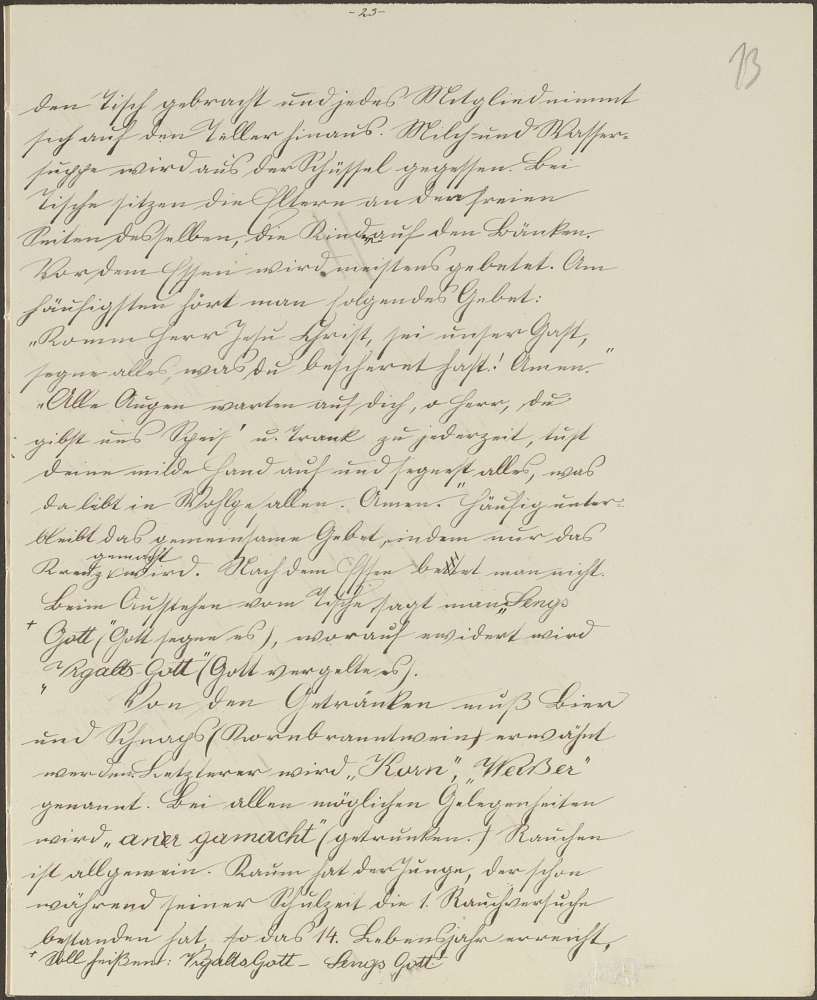 -23-
13
den Tisch gebracht und jedes Mitglied nimmt
sich auf den Teller hinaus. Milch- und Wasser-
suppe wird aus der Schüssel gegessen. Bei
Tische sitzen die Eltern an den freien
Seiten desselben, die Kinder auf den Bänken.
Vor dem Essen wird meistens gebetet. Am
häufigsten hört man folgendes Gebet:
„Komm Herr Jesu Christ, sei unser Gast,
segne alles, was du bescheret hast! Amen."
„Alle Augen warten auf dich, o Herr, du
gibst uns Speis' u. Trank zu jederzeit, tust
deine milde Hand auf und segnest alles, was
da lebt in Wohlgefallen. Amen." Häufig unter-
bleibt das gemeinsame Gebet, indem nur das
Kreuz gemacht wird. Nach dem Essen betet man nicht.
Beim Aufstehen vom Tische sagt man „Sengs
+ Gott" (Gott segne es), worauf erwidert wird
„Vrgalts Gott" (Gott vergelte es).
Von den Getränken muß Bier
und Schnaps (Kornbranntwein) erwähnt
werden. Letzterer wird „Korn", „Weißer"
genannt. Bei allen möglichen Gelegenheiten
wird „aner gamacht" (getrunken.) Rauchen
ist allgemein. Kaum hat der Junge, der schon
während seiner Schulzeit die 1. Rauchversuche
bestanden hat, so das 14. Lebensjahr erreicht,
+ Soll heißen: Vrgalts Gott - Sengs Gott